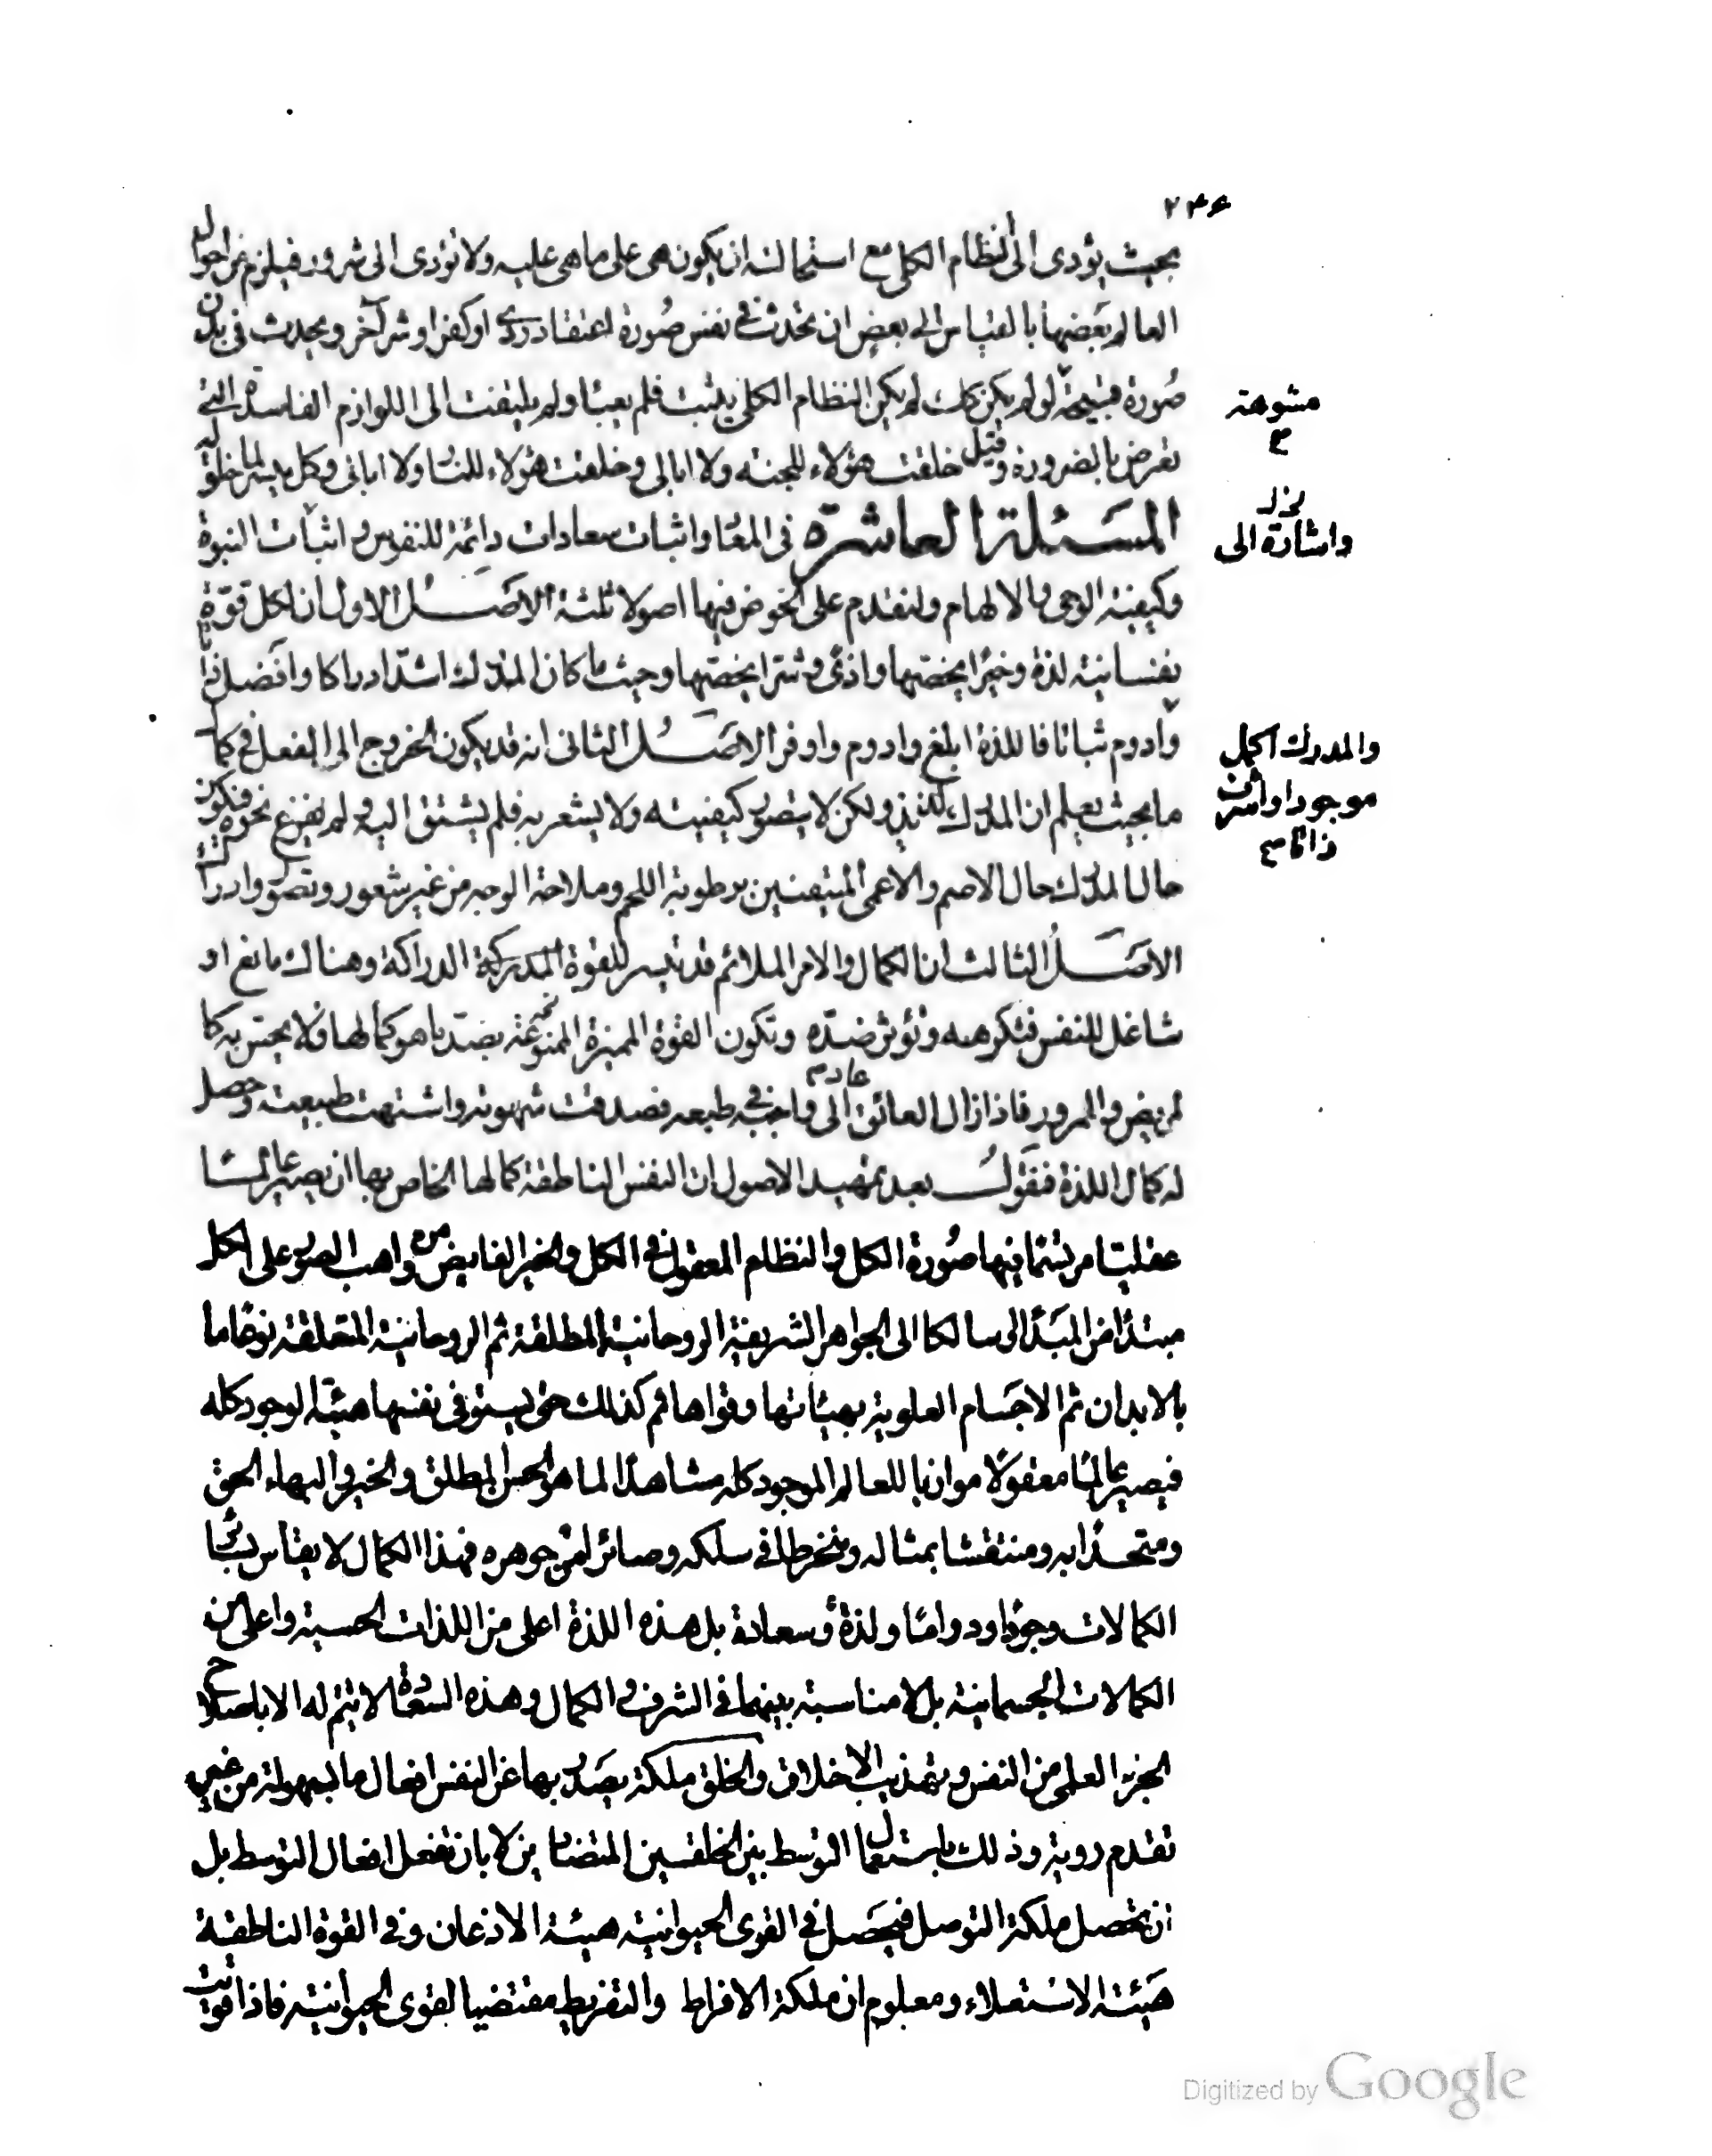 ٢٣۶
بحيث يؤدى الى النظام الكلى مع استحالة ان يكون هى على ما هى عليه ولا تؤدى الى شرور فيلزم من احوال
العالم بعضها بالقياس الى بعض ان تحدث فى نفس صُورة اعتقاد ردى او كفر او شر آخر ويحدث فى بدن
صُورة قبيحة لو لم يكن كذلك لم يكن النظام الكلى يثبت فلم يعبأ ولم يلتفت الى اللوازم الفاسدة التى
مشوهة
تعرض بالضرورة وقيل خلقت هؤلاء للجنة ولا ابالى وخلقت هؤلاء للنار ولا ابالى وكل ميسر لما خلق له
المسَئلة العاشرة فى المعاد واثبات سعادات دائمة للنفوس واثبات النبوة
واشارة الى
وكيفية الوحى والالهام ولنقدم على الخوض فيها اصولا ثلثة الاصَـل الاول ان لكل قوّة
نفسانية لذة وخيرا يخصّها واذى وشرا يخصّها وحيث ما كان المدرك اشدّ ادراكا وافضل ذاتا
وادوم ثباتا فاللذة ابلغ وادوم واوفر الاصَـل الثانى انه قد يكون الخروج الى الفعل فى كمال
والمدرك اكمل
موجودا واشرف
ذاتا
ما بحيث يعلم ان المدرك لذيذ ولكن لا يتصور كيفيته ولا يشعر به فلم يشتق اليه ولم يفزع نحوه فيكون
حال المدرك حال الاصم والاعمى المتيقنين برطوبة اللحم وملاحة الوجه من غير شعور وتصور وادراك
الاصَـل الثالث ان الكمال والامر الملائم قد تيسر للقوة الدراكة وهناك مانع او
شاغل للنفس فتكرهه وتؤثر ضدّه وتكون القوة المميزة الممنوة بضد ما هو كمالها فلا يحس به كا
لمريض والممرور فاذا زال العائق عاد الى واجبه فى طبعه فصدقت شهوته واشتهت طبيعته وحصل
له كمال اللذة فنقول بعد تمهيد الاصول ان النفس الناطقة كمالها الخاص بها ان يصير عالما
عقليا مرتسما فيها صُورة الكل والنظام المعقول فى الكل والخير الفايض من واهب الصور على الكل
مبتدأ من المبَدأ سالكا الى الجواهر الشريفة الروحانية المطلقة ثم الروحانية المتعلقة نوعًا ما
بالابدان ثم الاجسَام العلوية بهيئاتها وقواها ثم كذلك حتى يستوفى نفسها هيئة الوجود كله
فيصير عالمًا معقولًا موازيا للعالم الموجود كله مشاهدا لما هو الحسن المطلق والخير والبهاء الحق
ومتحدًا به ومنتقشا بمثاله ومنخرطا فى سلكه وصائرا من جوهره فهذا الكمال لا يقاس بسائر
الكمالات وجودًا ودوامًا ولذةً وسعادة بل هذه اللذة اعلى من اللذات الحسية واعلى من
الكمالات الجسمانية بل لا مناسبة بينهما فى الشرف والكمال وهذه السعادة لا تتم له الا باصلاح
الجزء العملى من النفس وتهذيب الاخلاق والخلق ملكة يصَدر بها عن النفس افعال ما بسهولة من غير
تقدم روية وذلك باستعمال التوسط بين الخلقين المتضادين لا بان تفعل افعال التوسط بل
ان تحصل ملكة التوسط فيحصَل فى القوى الحيوانية هيئة الاذعان وفى القوة الناطقة
هيئة الاستعلاء ومعلوم ان ملكة الافراط والتفريط مقتضيا القوى الحيوانية فاذا قويت
Digitized by Google